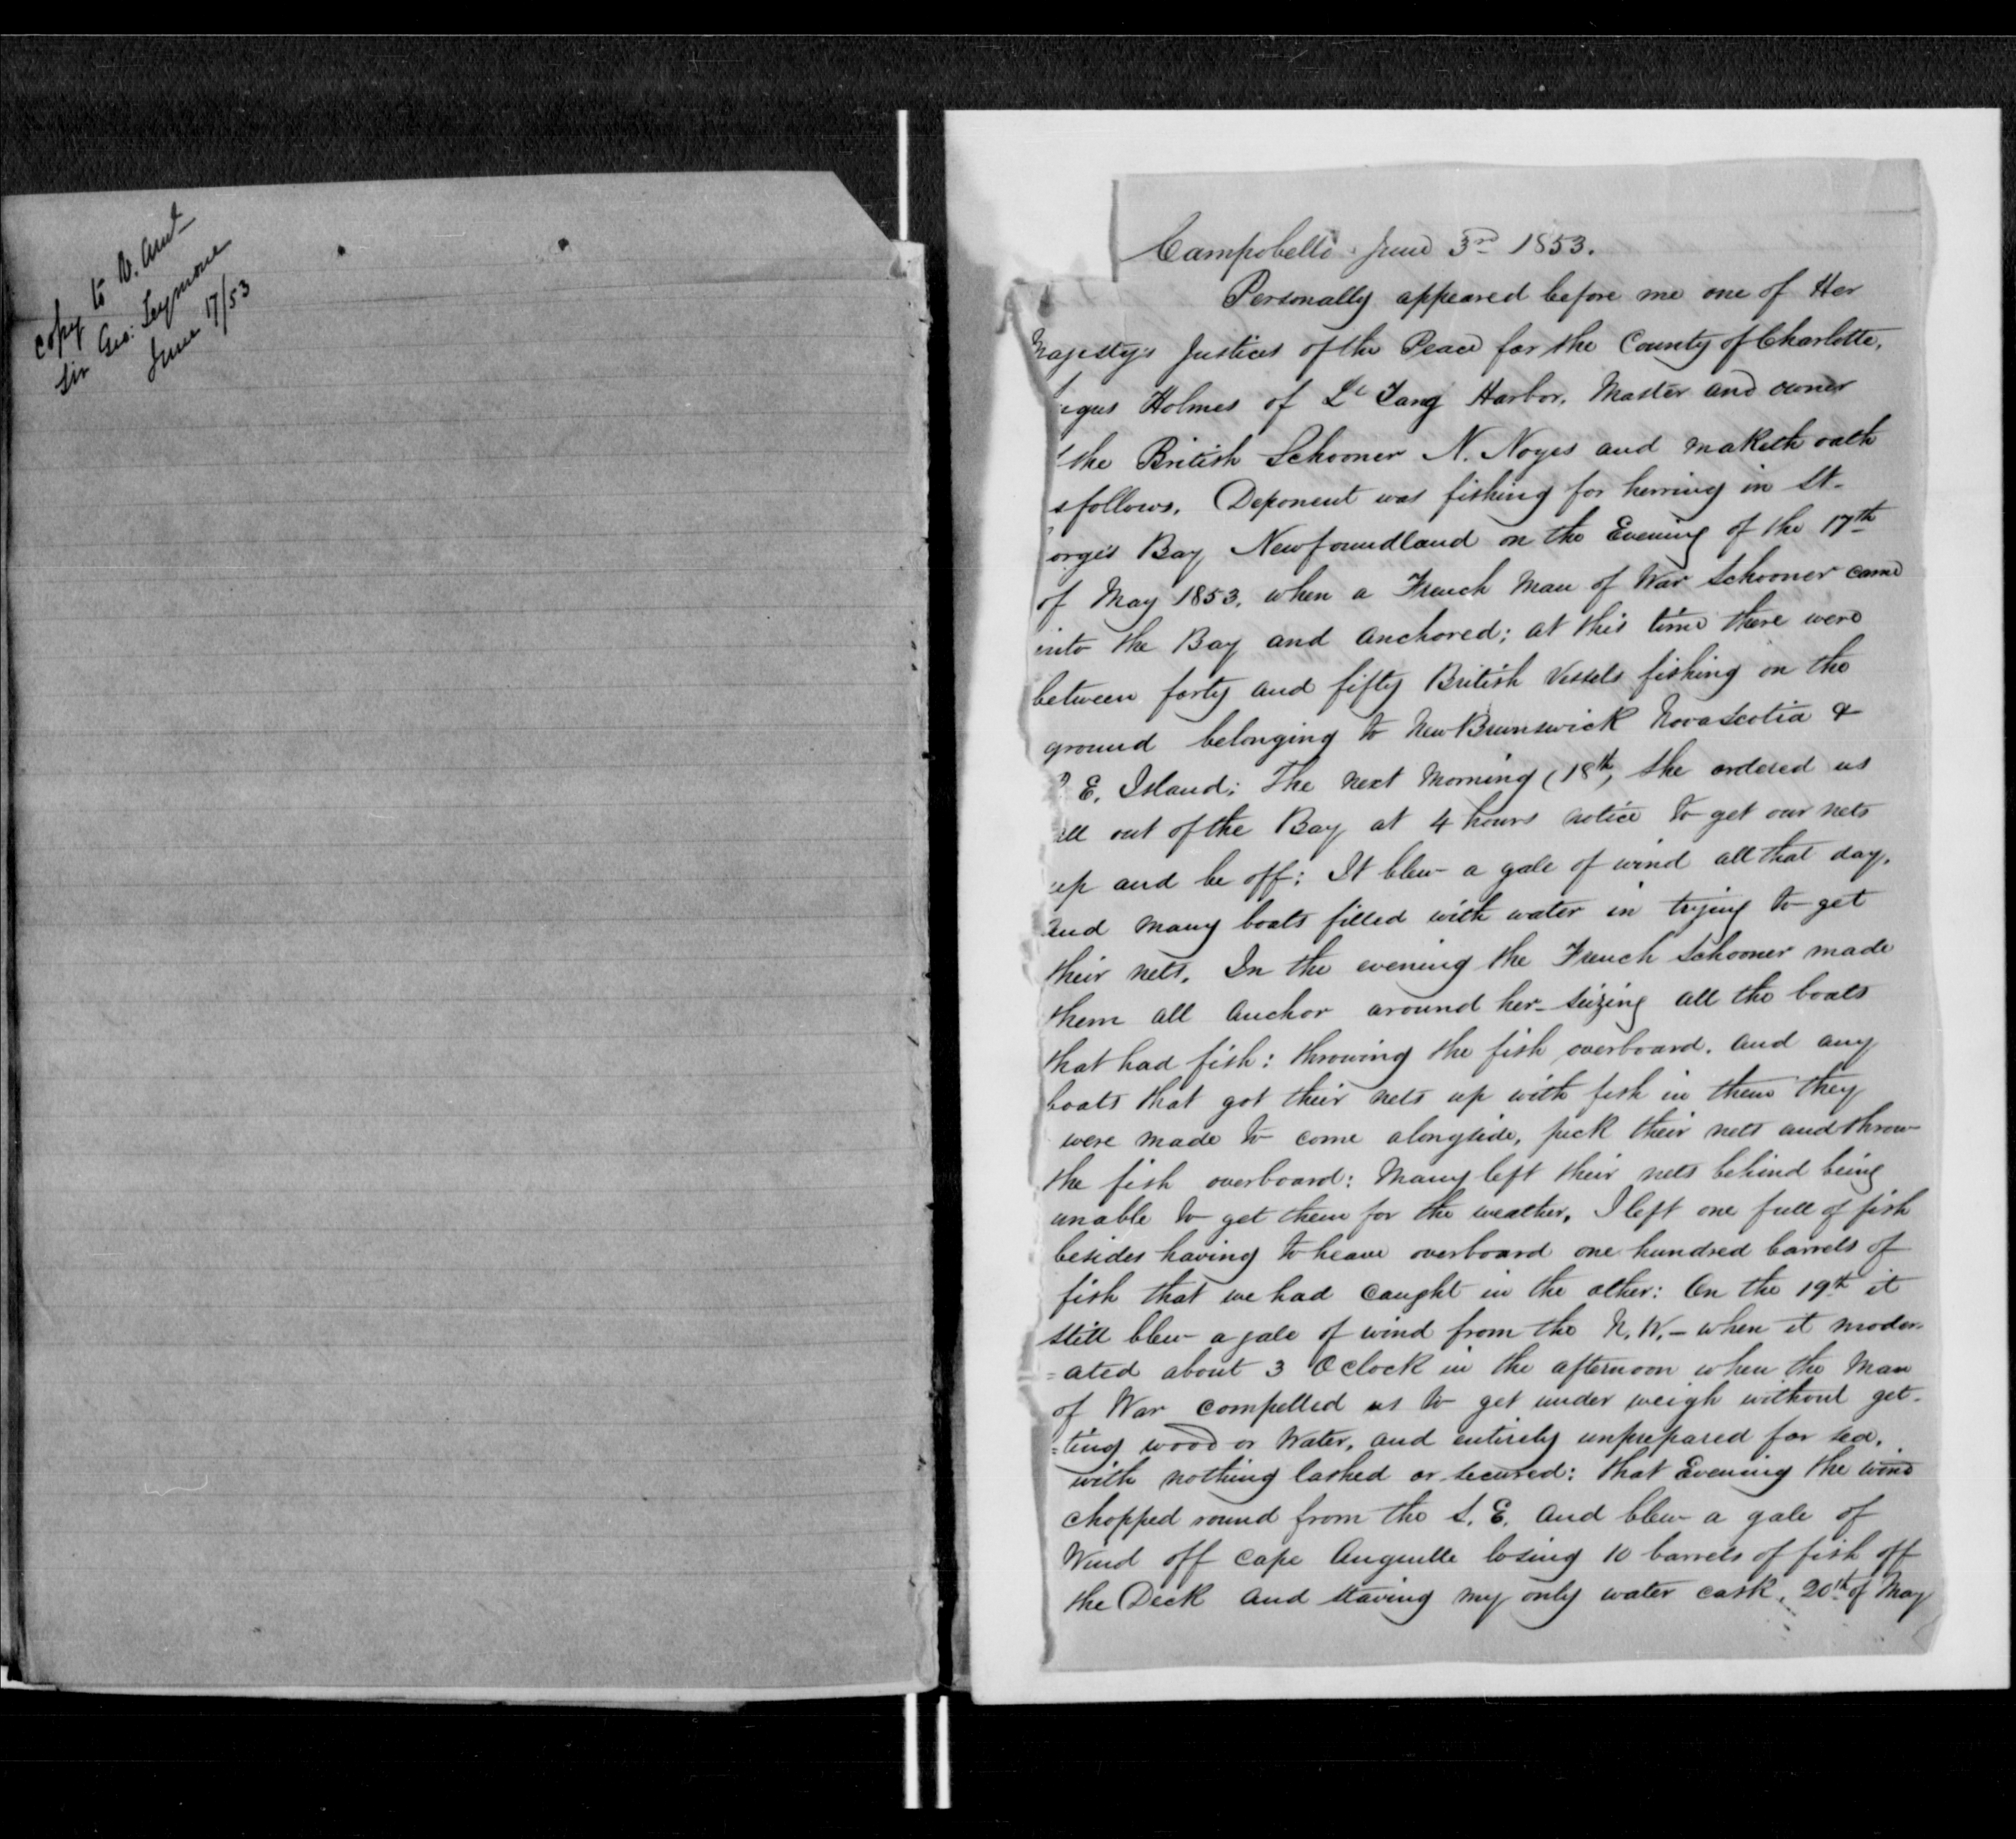 copy to V. Adml
Sir Geo: Seymour
June 17/53
Campobello June 3rd 1853.
Personally appeared before me one of Her
Majesty's Justices of the Peace for the County of Charlotte,
Holmes of Le Tang Harbor, Master and owner
the British Schooner N. Noyes and maketh oath
s follows. Deponent was fishing for herring in St.
orge's Bay Newfoundland on the Evening of the 17th
of May 1853, when a French Man of War Schooner came
into the Bay and anchored; at this time there were
between forty and fifty British Vessels fishing on the
ground belonging to New Brunswick Nova Scotia &
E. Island; The next Morning (18th, she ordered us
all out of the Bay at 4 hours notice to get our nets
up and be off; It blew a gale of wind all that day,
and many boats filled with water in trying to get
their nets. In the evening the French Schooner made
them all anchor around her - seizing all the boats
that had fish: throwing the fish overboard. and any
boats that got their nets up with fish in them they
were made to come alongside, pick their nets and throw
the fish overboard: Many left their nets behind being
unable to get them for the weather, I left one full of fish
besides having to heave overboard one hundred barrels of
fish that we had caught in the other: On the 19th it
still blew a gale of wind from the N.W. - when it moder-
=ated about 3 O Clock in the afternoon when the Man
of War compelled us to get under weigh without get-
=ting wood or Water, and entirely unprepared for sea,
with nothing lashed or secured: that Evening the wind
chopped round from the S.E. and blew a gale of
Wind off Cape Anguille losing 10 barrels of fish off
the Deck and staving my only water cask, 20th of May